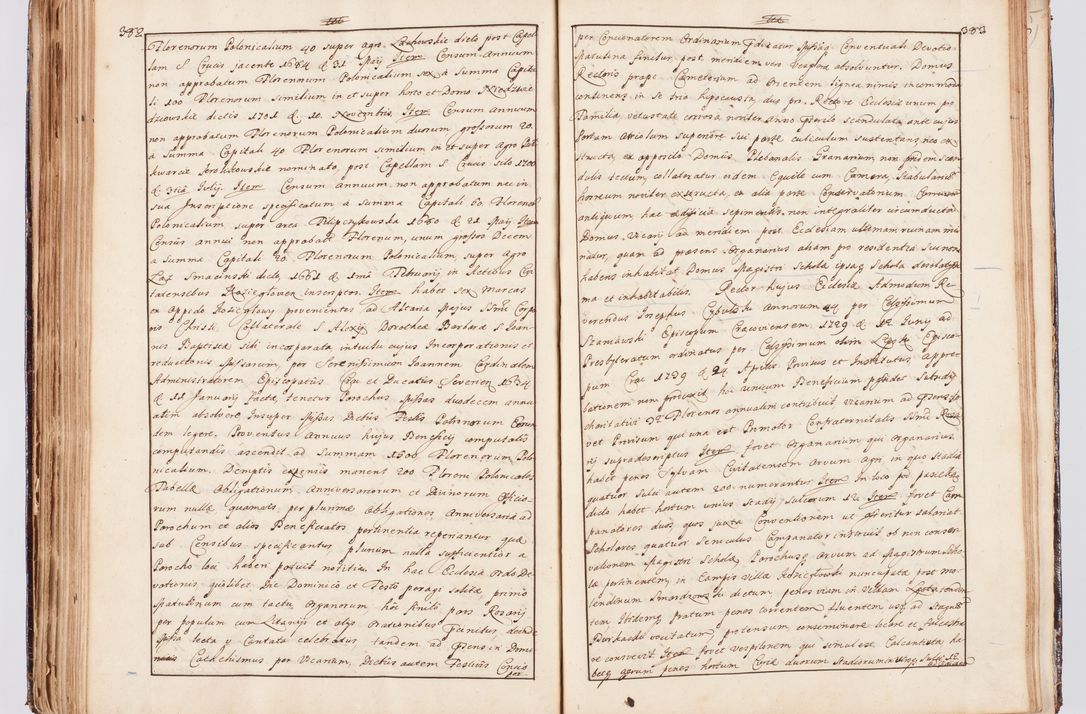 382
Florenorum Polonicalium 40 super agro Lachowskie dicto post Capel
lam S. Crucis jacente 1684 d. 21 Maij Item Censum Annuum
non approbatum Florenorum Polonicalium sex à Summa Capita
li 100 Florenorum similium in et super horto et Domo
dzicowskie dictis 1701 d. 10 Novembris Item Censum annuum
non approbatum Florenorum Polonicalium duorum grossorum 20.
à Summa Capitali 40 Florenorum similium in et super Agro
nominato, post Capellam S. Crucis sito 1700
d. 3tia Julij. Item Censum annuum non approbatum nec in
sua Inscriptione specificatum à Summa Capitali 60. Floreno
Polonicalium super area Filipczykowska 1680 d. 21 Maij Item
Census annui non approbati Florenum, unum grossos Decem
a Summa Capitali 20 Florenorum Polonicalium, super Agro
Łaz Smacinski dicto 1661 d. 1ma Februarij in Actibus Civi
tatensibus Koziegloven inscriptum. Item habet sex Marcas
ex Oppido Kozieglowy provenientes ad Altaria Majus SSmi Corpo
ris Christi, Collaterale S. Alexij Dorothea Barbara S. Joan
nis Baptista Sibi incorporata intuitu cujus Incorporationis et
reductionis Missarum, per Serenissimum Joannem Cardinalem
Administratorem Episcopatûs Crac et Ducatûs Severien 1634
d. 11 Januarij facta, tenetur Parochus Missas duodecem annu
atim absolvere Insuper Missas Diebus Festis Patronorum Eorun
dem legere. Proventus Annuus hujus Beneficij computatis
computandis ascendit ad Summam 1600 Florenorum Polo
nicalium. Demptis expensis manent 200 Floreni Polonicales
Tabella Obligationum Anniversariorum et Divinorum Officio
rum nulla quamvis, per plurima Obligationes Anniversaria ad
Parochum et alios Beneficiatos pertinentia reperiantur qua
sub Censibus specificantur plurium nulla sufficientior a
Parocho loci haberi potuit notitia. In hac Ecclesia Ordo De
votionis quâlibet Die Dominico et Festo peragi solita primo
Matutinum cum tactu Organorum hôc finito pars Rosarij
per populum cum Litanijs et alijs Orationibus Canitur, deinde
Missa lecta et Cantata celebratur tandem ad Mensem Domi
Catechismus per Vicarium, Diebus autem Festivis Concio
per
383
per Concionatorem Ordinarium Missaque Conventuali Devotio
Matutina finitur post meridiem vero Vespera absolvuntur. Domus
Rectoris prope Cameterium ad Orientem lignea nimis incommoda
continens in se tria hipocausta, duo pro Rectore Ecclesia unum pro
Familia vetustate corrosa noviter Anno scandulata, ante cujus
Portam Atriolum superiore sui parte cubiculum Sustentans neo ex
structa, ex apposito Domûs Plebanalis Granarium non pridem scan
dulis tectum, collocatur eidem Equile cum Camera, Stabulariis
horreum noviter exstructa, ex alia parte Conservatorium
antiquum hac adificia sepimentis non integraliter circumducta
Domus Vicarij ad meridiem post Ecclesiam ultimam ruinam mi
natur, quam ad prasens Organarius aliam pro residentia suâ non
habens inhabitat Domus Magistri Schola ipsaque Schola desolatissi
ma et inhabitabilis. Rector hujus Ecclesia Admodum Re
verendus Josephus Cybulski Annorum 44 per Celsissimum
Szaniawski Episcopum Cracoviensem 1729 d. 12 Junij ad
Presbyteratum ordinatus per Celsissimum olim Lipski Episco
pum Crac 1739 d. 24 Aprilis Provisus et Institutus Appro
bationem non produxit hic unicum Beneficium possidet Subsidij
charitativi 32 Florenos annualim contribuit Vicarium ad Mensem fo
vet Provisum qui una est Promotor Confraternitatis SSmi Rosa
rij supradescriptus Item fovet Organarium qui Organarius
habet penes Sylvam Civitatensem Arvum Agri in quo Stadia
quatuor Sulci autem 200 numerantur Item In loco
dicto habet hortum unius Stadij Sulcorum 12 Item fovet Cam
panatores duos quos juxta Conventionem ut asseritur salariat
Scholares quatuor Seniculus Campanator instruit ob non conser
vationem Magistri Schola, Parochusque arvum ad Magistrum Scho
la pertinentem, in Campis villa nuncupata post mo
lendinum dictum penes viam in Villam Lgota tenden
tem Itidemque pratum penes Currentem fluentem usque ad Stagnum
vocitatum protensum, conseminare
ve consvevit Item fovet Vespilionem qui simul est Calcantista ha
betque agrum penes hortum duorum Stadiorum utriusque Sulci 12